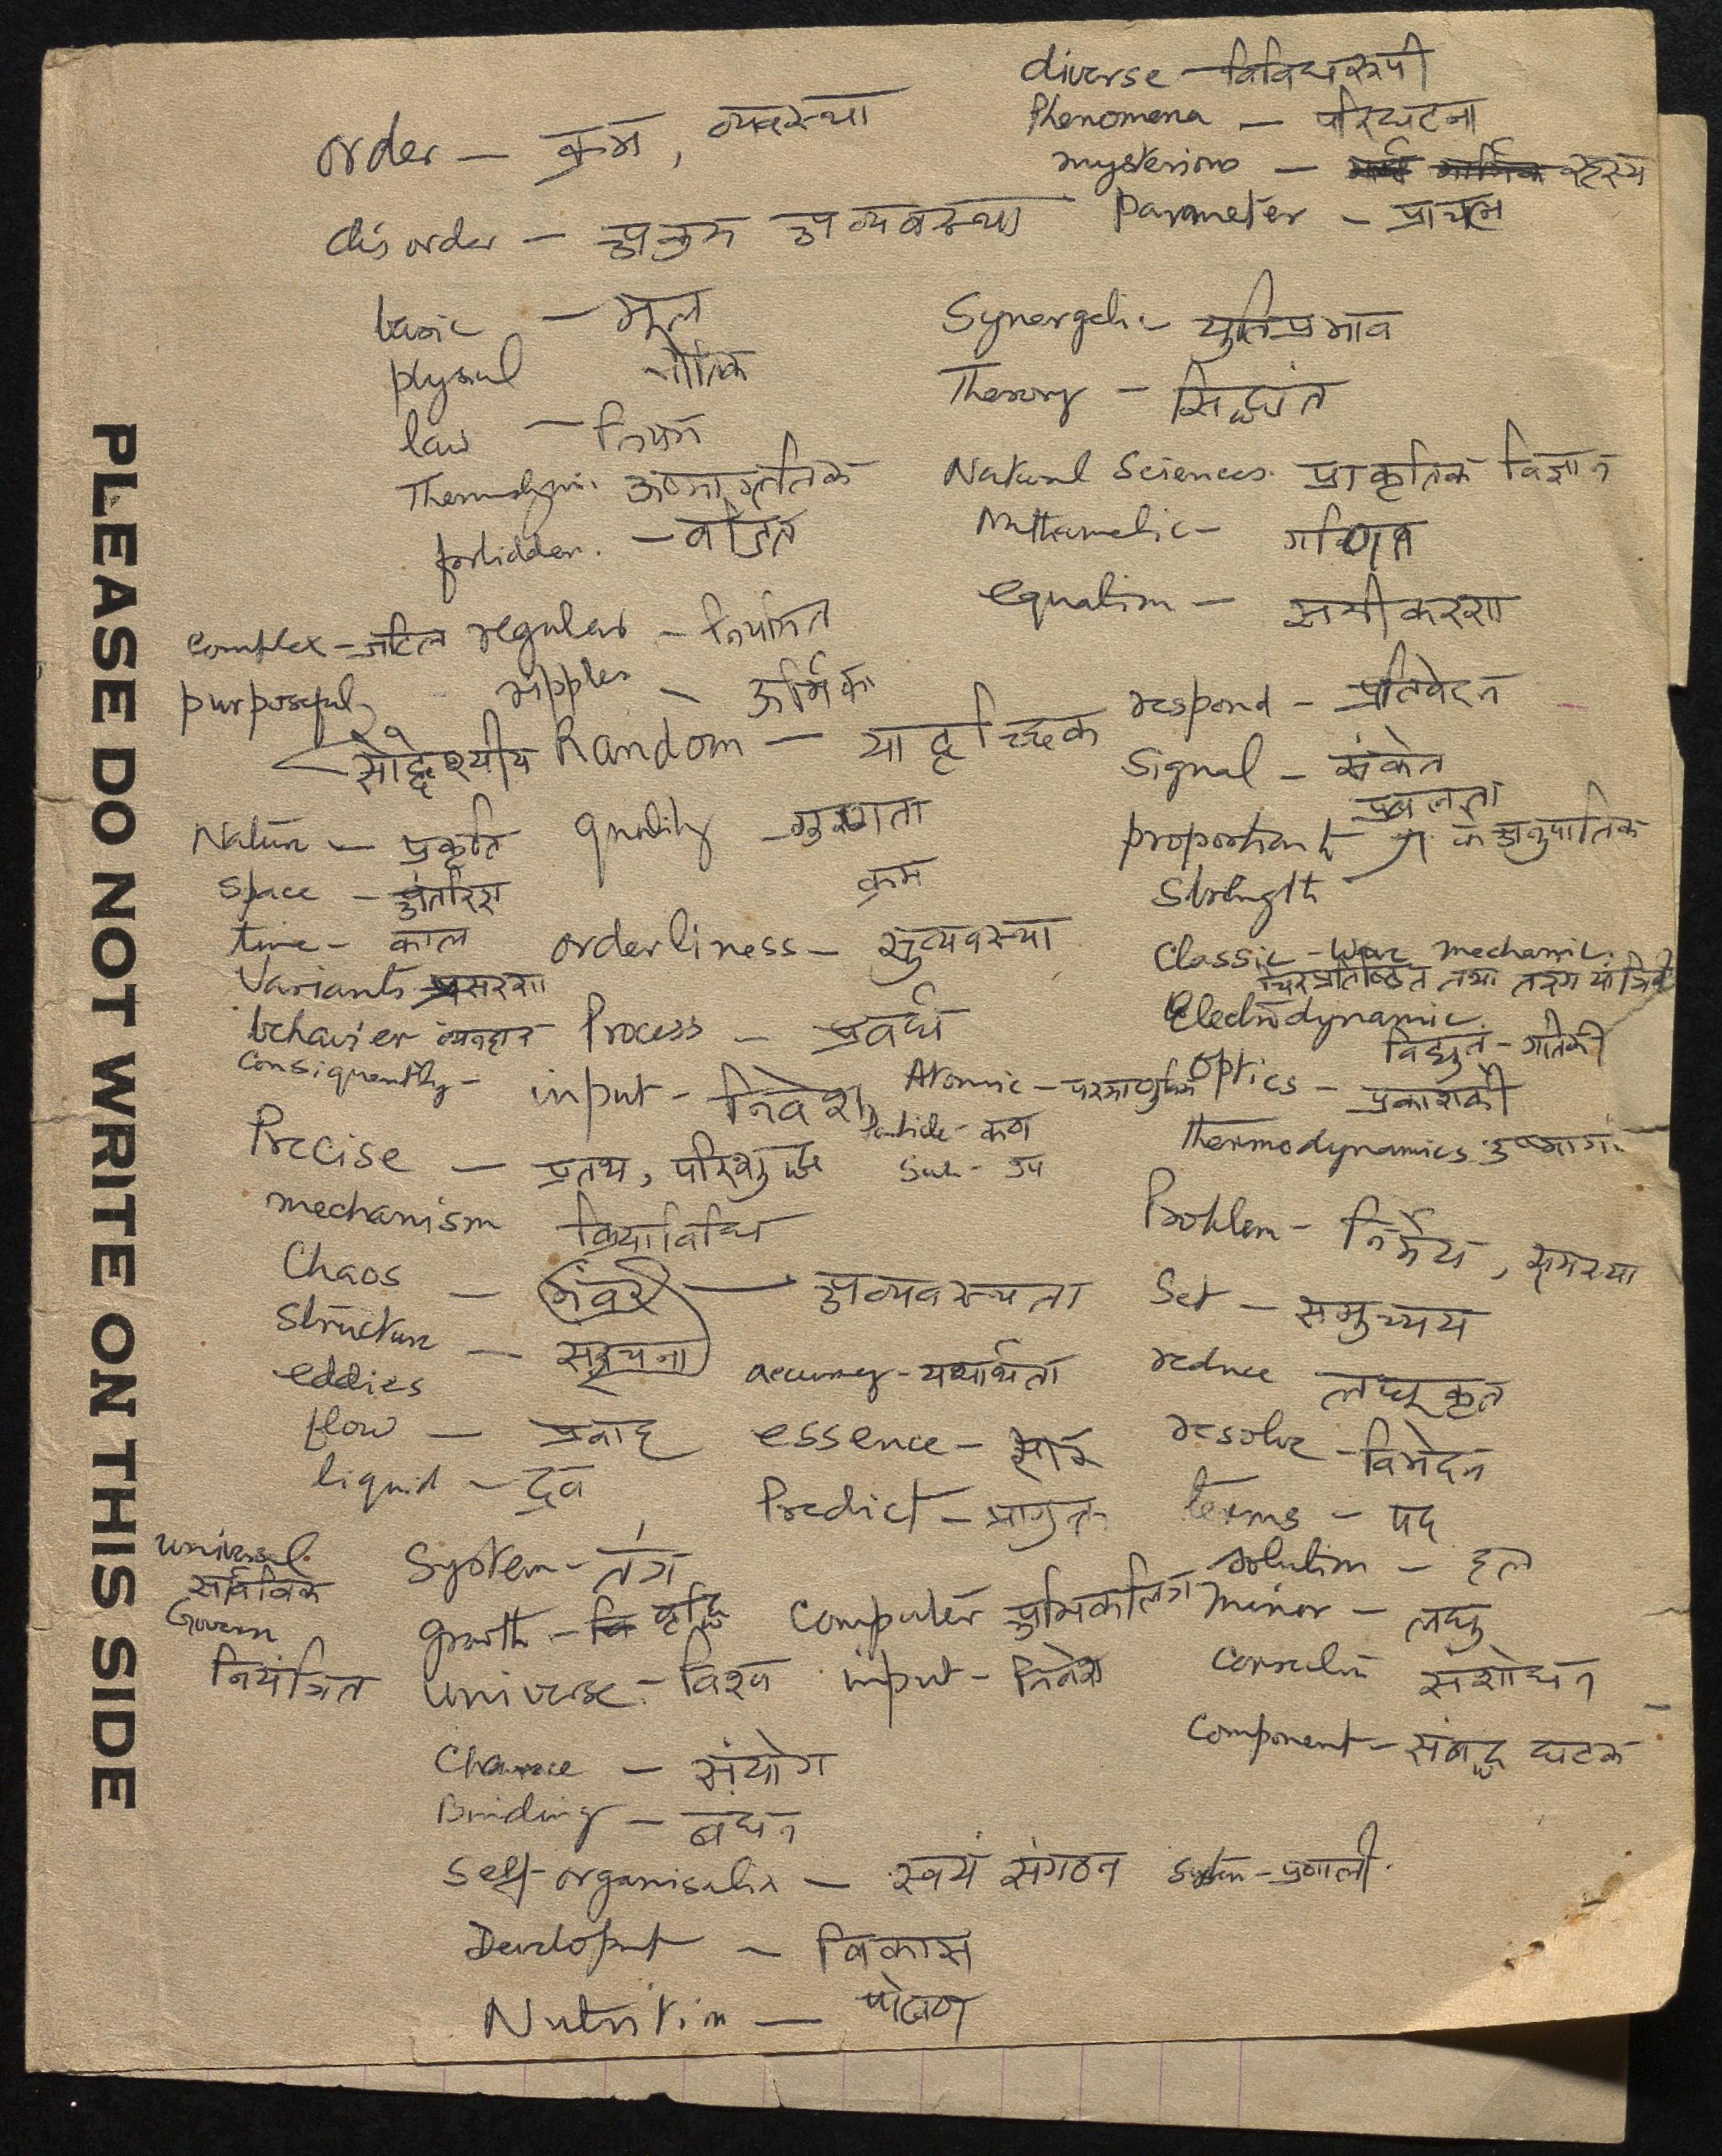 diverse - विविधरूपी
Phenomena - परिघटना
order - क्रम, व्यवस्था
mysterious - रहस्य
disorder - अक्रम अव्यवस्था
Parameter - प्राचल
basic - मूल
physical भौतिक
law - नियम
Thermodyni. ऊष्मागतिक
forbidden. - वर्जित
Synergetic - युतिप्रभाव
Theory - सिद्धांत
Natural Sciences. प्राकृतिक विज्ञान
गणित
equation - समीकरण
complex - जटिल
regular - नियमित
purposeful
ripples - ऊर्मिका
सोद्देश्यीय
Random - यादृच्छिक
respond - प्रतिवेदन
Signal - संकेत
प्रबलता
Nature - प्रकृति
quality - गुणता
के अनुपातिक
Strength
क्रम
space - अंतरिक्ष
time - काल
orderliness - सुव्यवस्था
Variants
behavier व्यवहार
Process -
Consiquently -
input - निवेश
Classic - Wave mechanic.
चिरप्रतिष्ठित तथा तरंग यांत्रिकी
Electrodynamic
विद्युत - गतिकी
Atomic - परमाणुविक
optics - प्रकाशकी
Particle - कण
Thermodynamics ऊष्माग.
Sub - उप
Precise - प्रतथ, परिशुद्ध
mechanism क्रियाविधि
Problem - निर्मेय, समस्या
Chaos - भंवर - अव्यवस्थता
Set - समुच्चय
Structure - संरचना
eddies
accuracy - यथार्थता
reduce लघूकृत
flow - प्रवाह
essence - सार
resolve - विभेदन
liquid - द्रव
Predict - प्रागुक्त
terms - पद
universal
सार्वत्रिक
System - तंत्र
solution - हल
Govern
नियंत्रित
growth - वृद्धि
Computer अभिकलित्र
minor - लघु
universe - विश्व
input - निवेश
संशोधन
Component - संबद्ध घटक
Chance - संयोग
Binding - बंधन
Self-organisation - स्वयं संगठन
System - प्रणाली.
विकास
Nutrition - पोषण
PLEASE DO NOT WRITE ON THIS SIDE